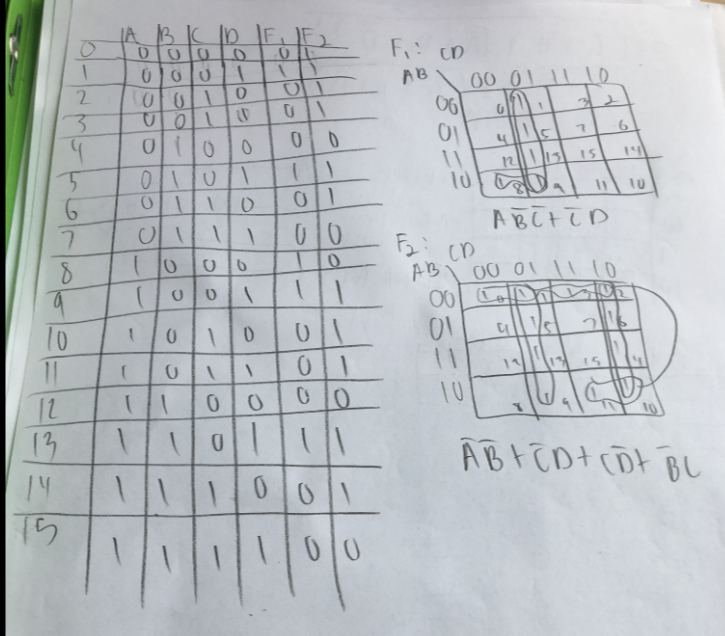 A B C D F₁ F₂
0 0 0 0 0 0 1
1 0 0 0 1 1 1
2 0 0 1 0 0 1
3 0 0 1 0 0 1
4 0 1 0 0 0 0
5 0 1 0 1 1 1
6 0 1 1 0 0 1
7 0 1 1 1 0 0
8 1 0 0 0 1 0
9 1 0 0 1 1 1
10 1 0 1 0 0 1
11 1 0 1 1 0 1
12 1 1 0 0 0 0
13 1 1 0 1 1 1
14 1 1 1 0 0 1
15 1 1 1 1 0 0
F₁: CD
AB 00 01 11 10
00 0 1 1 3 2
01 4 1 5 7 6
11 12 1 13 15 14
10 1 8 1 9 11 10
AB̄C̄ + C̄D
F₂: CD
AB 00 01 11 10
00 1 0 1 1 1 3 1 2
01 4 1 5 7 1 6
11 12 1 13 15 1 14
10 8 1 9 1 11 1 10
ĀB̄ + C̄D + CD̄ + B̄C